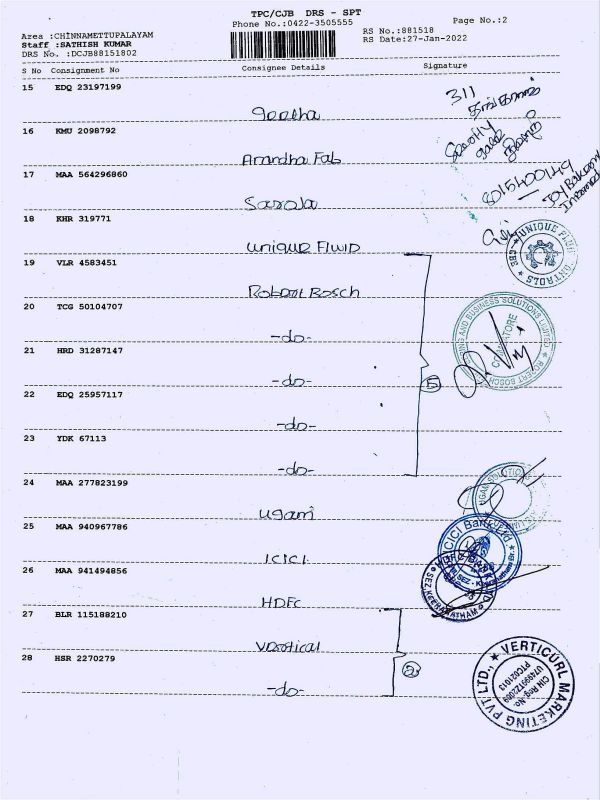 TPC/CJB DRS - SPT
Phone No.:0422-3505555
Page No.:2
Area :CHINNAMETTUPALAYAM
Staff :SATHISH KUMAR
DRS No. :DCJB88151802
RS No.:881518
RS Date:27-Jan-2022
S No Consignment No Consignee Details Signature
15 EDQ 23197199
Geetha
311
16 KMU 2098792
Anandha Fab
17 MAA 564296860
8015400149
Saroja
18 KHR 319771
Unique FLUID
UNIQUE FLUID CONTROLS
CBE
19 VLR 4583451
Robert Bosch
20 TCG 50104707
-do-
ENGINEERING AND BUSINESS SOLUTIONS LIMITED
ROBERT BOSCH
COIMBATORE
21 HRD 31287147
-do-
5
22 EDQ 25957117
-do-
23 YDK 67113
-do-
24 MAA 277823199
Ugam
UGAM SOLUTIONS
25 MAA 940967786
ICICI
ICICI Bank Ltd
26 MAA 941494856
HDFC
27 BLR 115188210
Vertical
28 HSR 2270279
-do-
2
VERTICURL MARKETING PVT LTD.,
CIN Reg. No.
U74999TZ2009
PTC021013